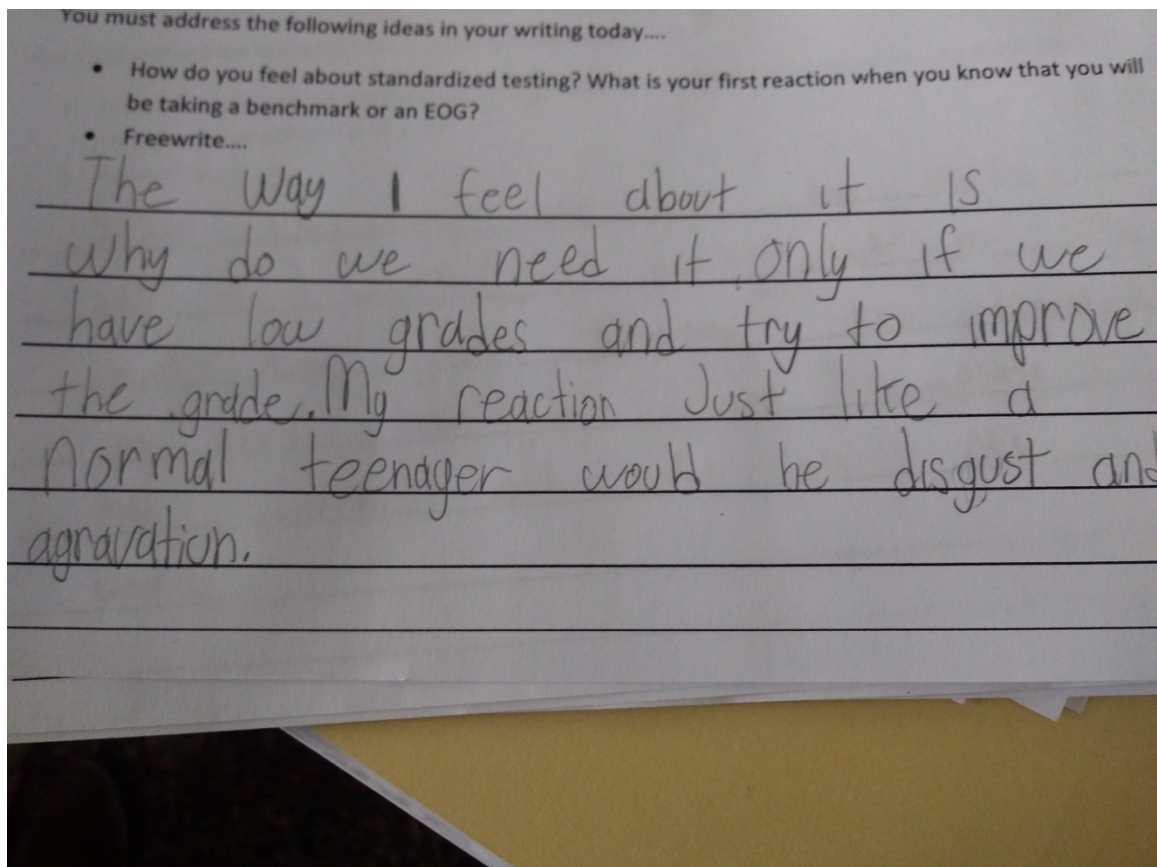 You must address the following ideas in your writing today....
• How do you feel about standardized testing? What is your first reaction when you know that you will
be taking a benchmark or an EOG?
• Freewrite....
The way I feel about it is
why do we need it, only if we
have low grades and try to improve
the grade. My reaction Just like a
normal teenager would be disgust and
agravation.